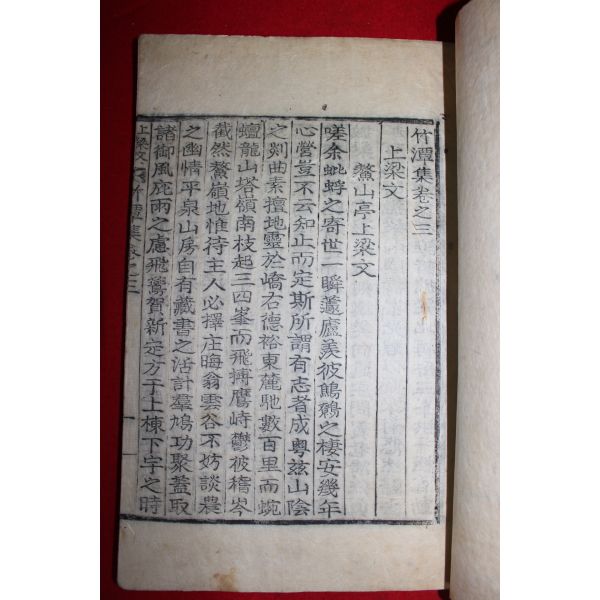 竹潭集卷之三
上梁文
鰲山亭上梁文
嗟余蚍蜉之寄世一瞬蘧廬羨彼鷦鷯之棲安幾年
心營豈不云知止而定斯所謂有志者成粤玆山陰
之剡曲素擅地靈於嶠右德裕東麓馳數百里而蜿
蟺龍山塔嶺南枝起三四峯而飛搏鷹峙鬱彼稽岑
截然鰲嶺地惟待主人必擇庄晦翁雲谷不妨談農
之幽情平泉山房自有藏書之活計羣鳩功聚蓋取
諸御風庇雨之慮飛鷰賀新定方于上棟下宇之時
上梁文 竹潭集卷之三 一